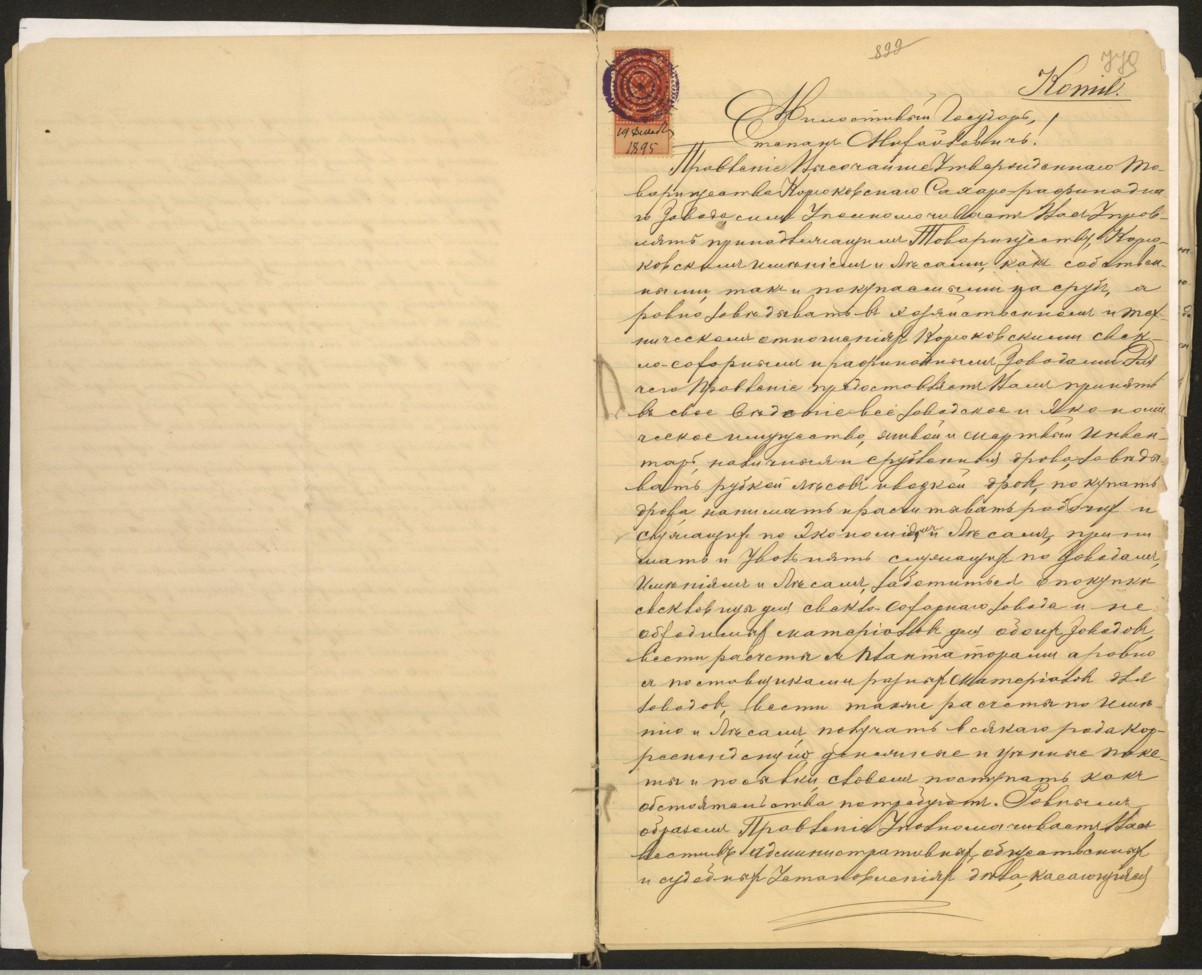 822
779
Копія.
19 Декаб
1895
Милостивый Государь,
Степанъ Михайловичъ!
Правленіе Высочайше Утвержденнаго То-
варищества Корюковскаго Сахаро-рафинадна
го Завода, симъ Уполномочиваетъ Васъ Управ-
лять принадлежащими Товариществу, Корю-
ковскими имѣніемъ и лѣсами, какъ собствен-
ными, такъ и покупаемыми на срубъ, а
равно завѣдывать въ хозяйственномъ и тех-
ническомъ отношеніяхъ Корюковскими свек-
ло-сахарнымъ и рафинаднымъ Заводами. Для
чего Правленіе предоставляетъ Вамъ принять
въ свое вѣдѣніе все заводское и Экономи-
ческое имущество, живой и мертвый инвен-
тарь, наличныя и срубленныя дрова, завѣды-
вать рубкой лѣсовъ и возкой дровъ, покупать
дрова нанимать и расчитывать рабочихъ и
служащихъ по Экономіямъ и Лѣсамъ, прини
мать и Увольнять служащихъ по Заводамъ,
Имѣніямъ и Лѣсамъ, заботиться о покупкѣ
свекловицы для свекло-сахарнаго завода и не
обходимыхъ матеріаловъ для обоихъ Заводовъ,
вести расчеты съ Плантаторами а равно
съ поставщиками разныхъ матеріаловъ для
заводовъ, вести также расчеты по Имѣ-
нію и Лѣсамъ получать всякаго рода кор-
респонденцію денежные и цѣнные паке-
ты и посылки, словомъ поступать какъ
обстоятельства потребуютъ. Равнымъ
образомъ Правленіе Уполномачиваетъ Васъ
вести въ Административныхъ, общественныхъ
и судебныхъ Установленіяхъ дѣла, касающіяся